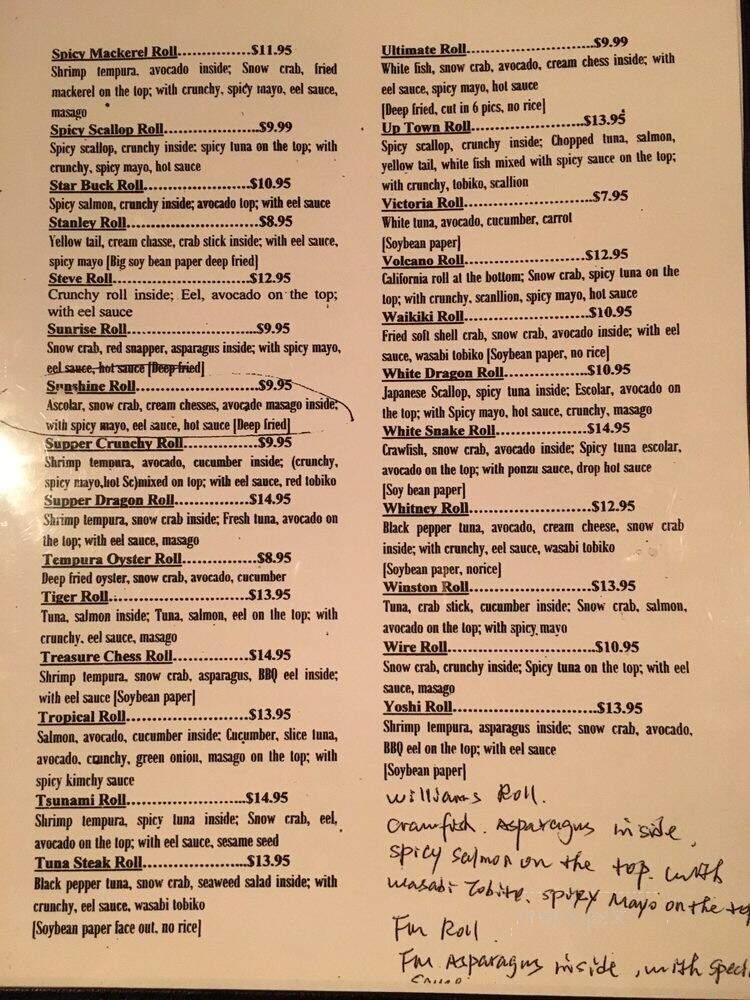 Spicy Mackerel Roll..............$11.95
Shrimp tempura. avocado inside; Snow crab, fried
mackerel on the top; with crunchy, spicy mayo, eel sauce,
masago
Spicy Scallop Roll..................$9.99
Spicy scallop, crunchy inside: spicy tuna on the top; with
crunchy, spicy mayo, hot sauce
Star Buck Roll....................$10.95
Spicy salmon, crunchy inside; avocado top; with eel sauce
Stanley Roll.........................$8.95
Yellow tail, cream chasse, crab stick inside; with eel sauce,
spicy mayo [Big soy bean paper deep fried]
Steve Roll..........................$12.95
Crunchy roll inside; Eel, avocado on the top;
with eel sauce
Sunrise Roll........................$9.95
Snow crab, red snapper, asparagus inside; with spicy mayo,
eel sauce, hot sauce [Deep fried]
Sunshine Roll.......................$9.95
Ascolar, snow crab, cream chesses, avocado masago inside;
with spicy mayo, eel sauce, hot sauce [Deep fried]
Supper Crunchy Roll..............$9.95
Shrimp tempura, avocado, cucumber inside; (crunchy,
spicy mayo,hot Sc)mixed on top; with eel sauce, red tobiko
Supper Dragon Roll..............$14.95
Shrimp tempura, snow crab inside; Fresh tuna, avocado on
the top; with eel sauce, masago
Tempura Oyster Roll..............$8.95
Deep fried oyster, snow crab, avocado, cucumber
Tiger Roll..........................$13.95
Tuna, salmon inside; Tuna, salmon, eel on the top; with
crunchy, eel sauce, masago
Treasure Chess Roll..............$14.95
Shrimp tempura, snow crab, asparagus, BBQ eel inside;
with eel sauce [Soybean paper]
Tropical Roll.......................$13.95
Salmon, avocado, cucumber inside; Cucumber, slice tuna,
avocado, crunchy, green onion, masago on the top; with
spicy kimchy sauce
Tsunami Roll.......................$14.95
Shrimp tempura, spicy tuna inside; Snow crab, eel,
avocado on the top; with eel sauce, sesame seed
Tuna Steak Roll...................$13.95
Black pepper tuna, snow crab, seaweed salad inside; with
crunchy, eel sauce, wasabi tobiko
[Soybean paper face out, no rice]
Ultimate Roll.......................$9.99
White fish, snow crab, avocado, cream chess inside; with
eel sauce, spicy mayo, hot sauce
[Deep fried, cut in 6 pics, no rice]
Up Town Roll.....................$13.95
Spicy scallop, crunchy inside; Chopped tuna, salmon,
yellow tail, white fish mixed with spicy sauce on the top;
with crunchy, tobiko, scallion
Victoria Roll.......................$7.95
White tuna, avocado, cucumber, carrot
[Soybean paper]
Volcano Roll.....................$12.95
California roll at the bottom; Snow crab, spicy tuna on the
top; with crunchy, scanllion, spicy mayo, hot sauce
Waikiki Roll......................$10.95
Fried soft shell crab, snow crab, avocado inside; with eel
sauce, wasabi tobiko [Soybean paper, no rice]
White Dragon Roll...............$10.95
Japanese Scallop, spicy tuna inside; Escolar, avocado on
the top; with Spicy mayo, hot sauce, crunchy, masago
White Snake Roll.................$14.95
Crawfish, snow crab, avocado inside; Spicy tuna escolar,
avocado on the top; with ponzu sauce, drop hot sauce
[Soy bean paper]
Whitney Roll......................$12.95
Black pepper tuna, avocado, cream cheese, snow crab
inside; with crunchy, eel sauce, wasabi tobiko
[Soybean paper, norice]
Winston Roll......................$13.95
Tuna, crab stick, cucumber inside; Snow crab, salmon,
avocado on the top; with spicy mayo
Wire Roll..........................$10.95
Snow crab, crunchy inside; Spicy tuna on the top; with eel
sauce, masago
Yoshi Roll.........................$13.95
Shrimp tempura, asparagus inside; snow crab, avocado,
BBQ eel on the top; with eel sauce
[Soybean paper]
Williams Roll.
Crawfish. Asparagus inside,
spicy salmon on the top. with
wasabi Tobiko, spicy Mayo on the top
Fm Roll
Fm Asparagus inside, with speci
sauce